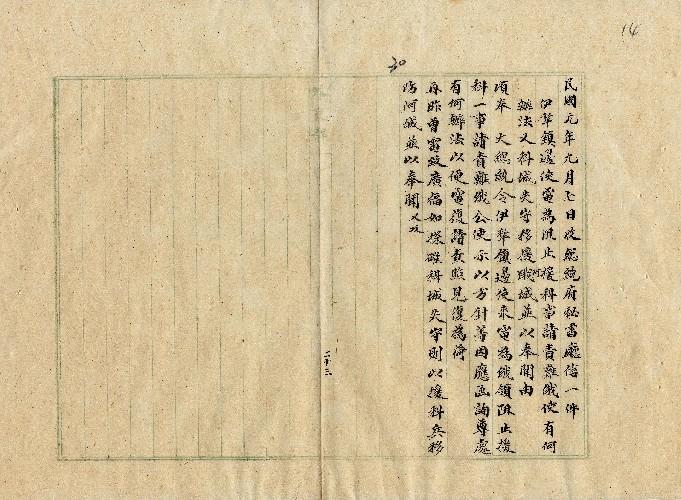 14
30
民國元年九月七日收總統府秘書廳信一件
伊犂鎮邊使電為阻止援科事請責難俄使有何
辦法又科城失守移援阿城並以奉聞由
頃奉 大總統令伊犂鎮邊使來電為俄領阻止援
科一事請責難俄公使示以方針等因應函詢尊處
有何辦法以便電復請查照見復為荷
再昨曾電致廣福如探確科城失守則以援科兵移
防阿城並以奉聞 又及
二十三